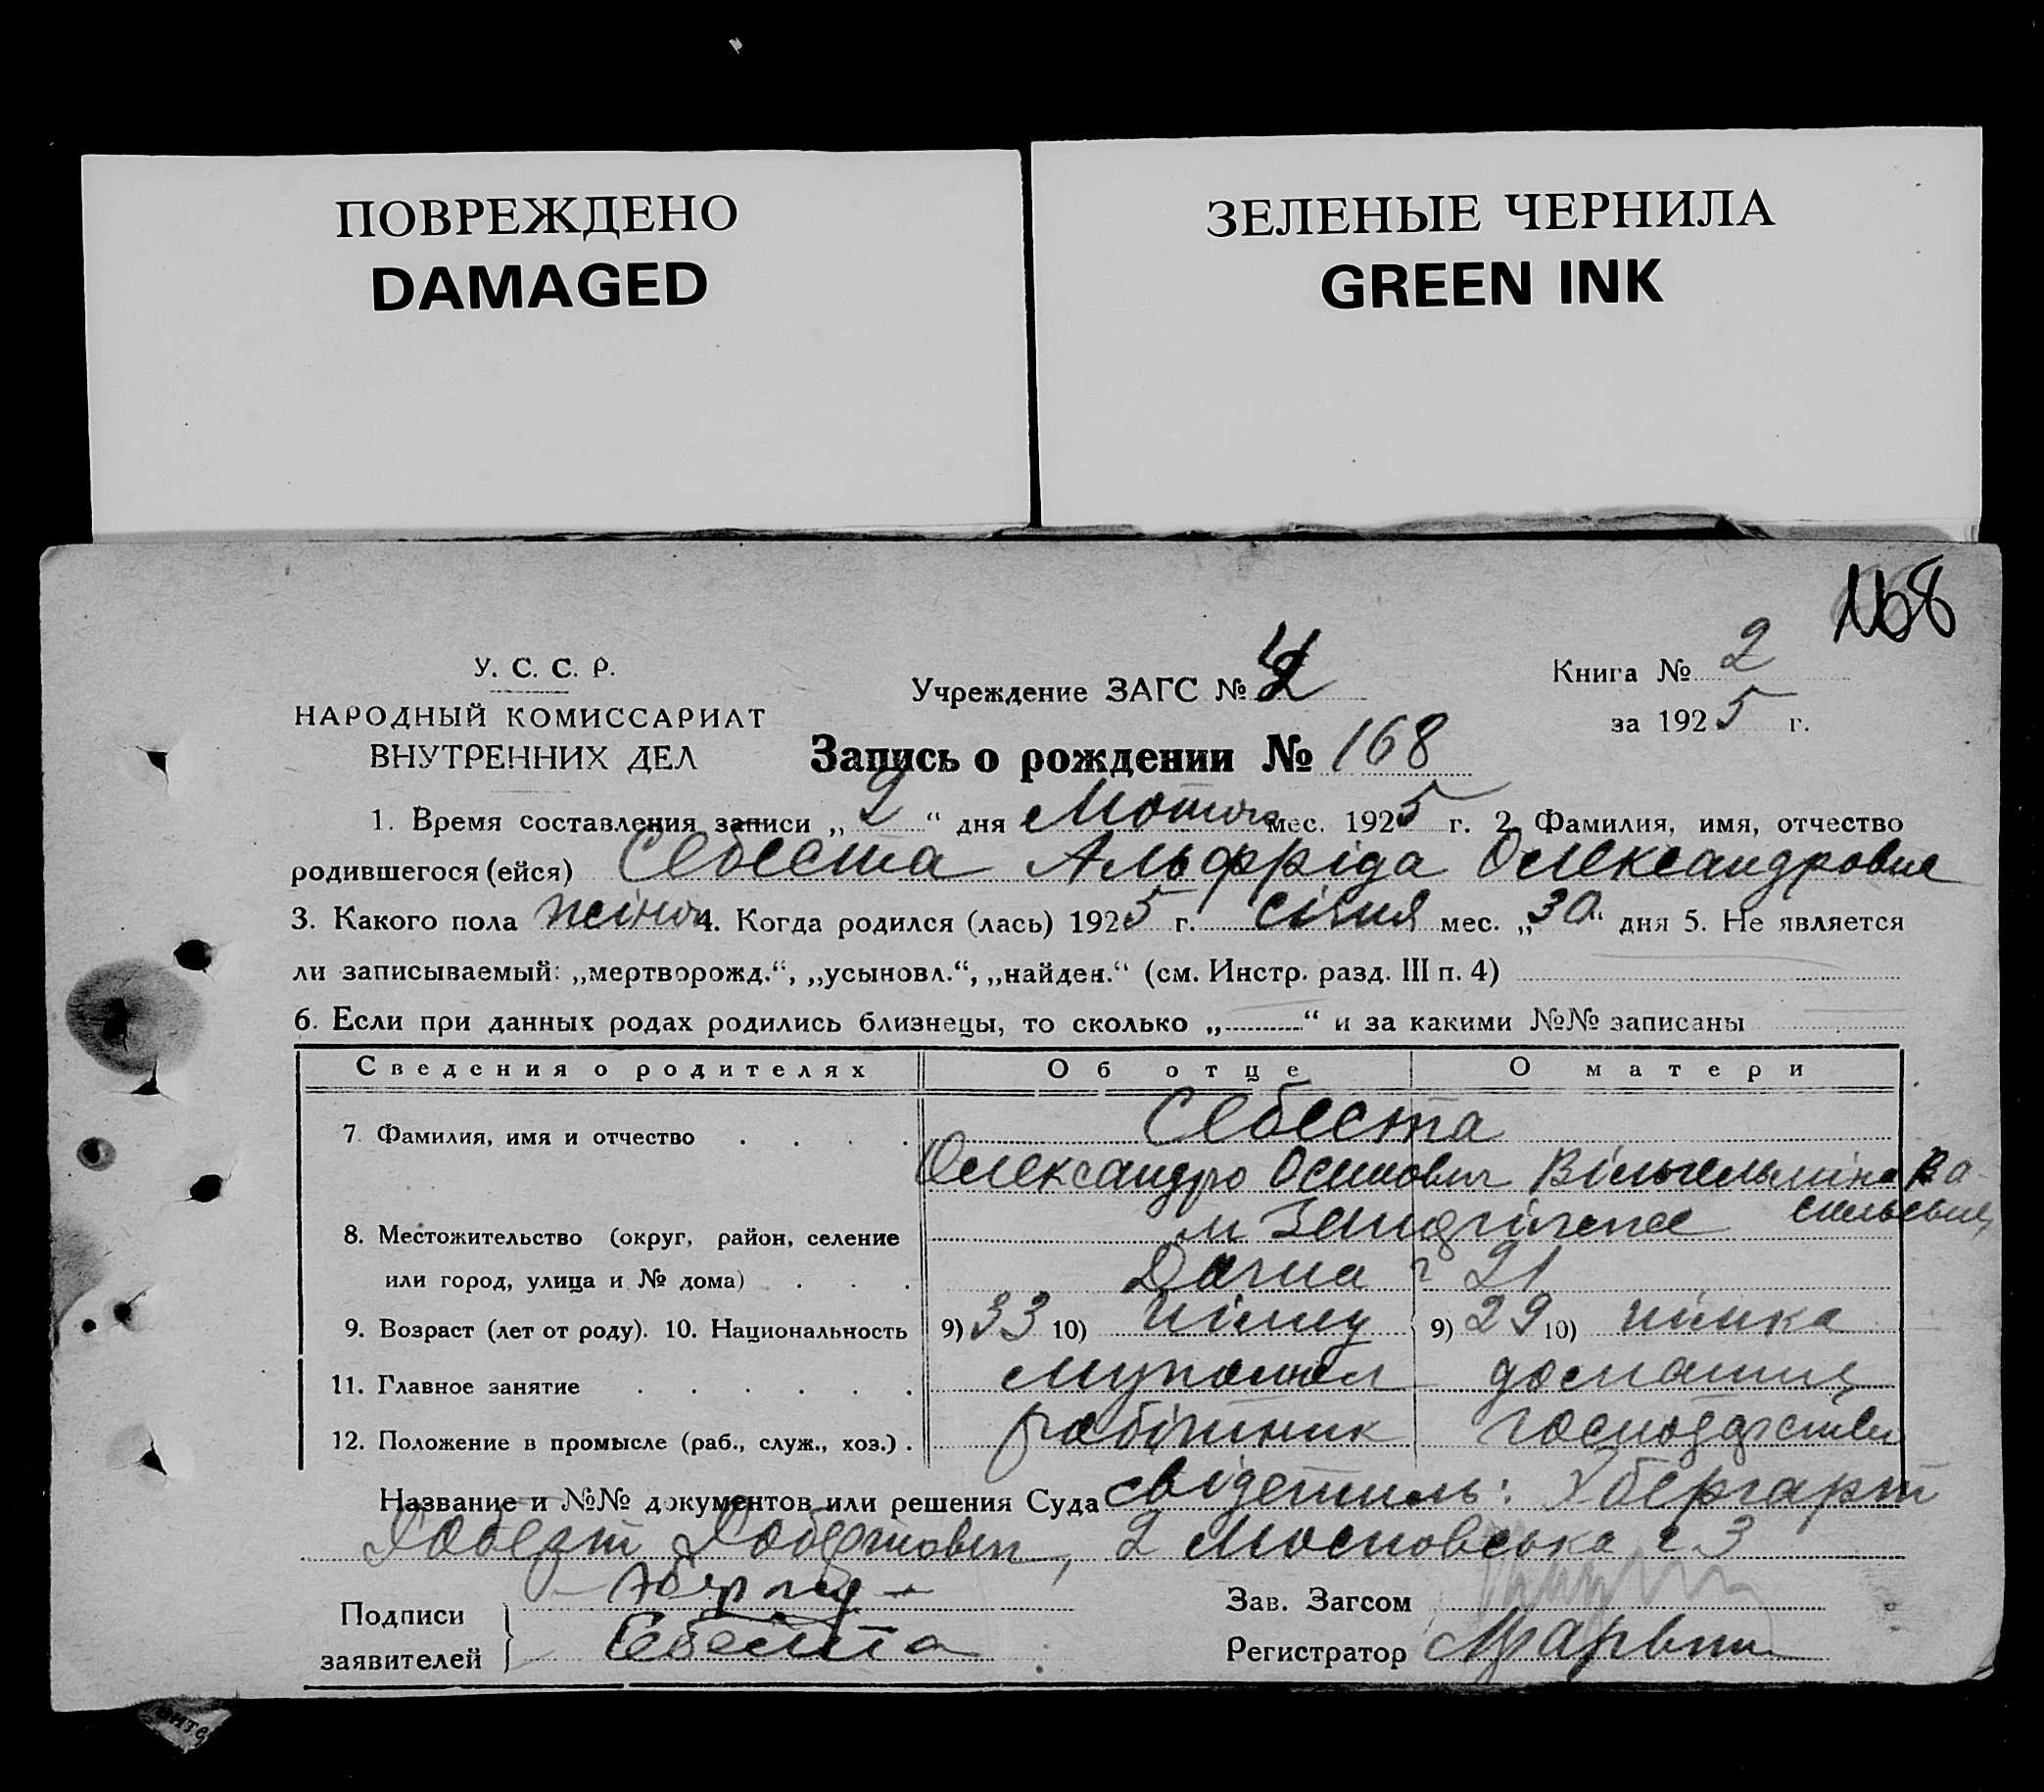 ПОВРЕЖДЕНО
DAMAGED
ЗЕЛЕНЫЕ ЧЕРНИЛА
GREEN INK
168
У. С. С. Р.
НАРОДНЫЙ КОМИССАРИАТ
ВНУТРЕННИХ ДЕЛ
Учреждение ЗАГС №
Книга № 2
за 1925 г.
Запись о рождении № 168
1. Время составления записи „2“ дня Лютого мес. 1925 г. 2. Фамилия, имя, отчество
родившегося (ейся) Себеста Альфріда Олександровна
3. Какого пола жіноч 4. Когда родился (лась) 1925 г. січня мес. „30“ дня 5. Не является
ли записываемый: „мертворожд.“, „усыновл.“, „найден.“ (см. Инстр. разд. III п. 4)
6. Если при данных родах родились близнецы, то сколько „ “ и за какими №№ записаны
Сведения о родителях Об отце О матери
7. Фамилия, имя и отчество Себеста
Олександро Осипович Вільгельміна Ва-
сильевна
8. Местожительство (округ, район, селение
или город, улица и № дома) 21
9. Возраст (лет от роду). 10. Национальность 9) 33 10) німец 9) 29 10) німка
11. Главное занятие домашнє
12. Положение в промысле (раб., служ., хоз.) робітник господарство
Название и №№ документов или решения Суда свідетель: Убергарт
Роберт Робертович, 2 Московська 3
Подписи
заявителей Себеста
Зав. Загсом
Регистратор